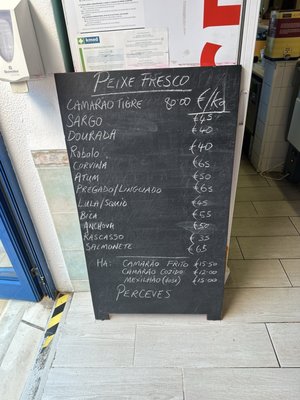 kmed
PEIXE FRESCO €/Kg
CAMARAO TIGRE 80.00
SARGO €45
DOURADA €40
Robolo €40
CORVINA €65
ATUM €50
PREGADO/LINGUADO €65
LULA/SQUID €45
BICA €55
ANCHOVA €50
RASCASSO €35
SALMONETE €65
HA: CAMARAO FRITO €15.50
CAMARAO COZIDO €12.00
MEXILHAO (DOSE) €15.00
PERCEVES